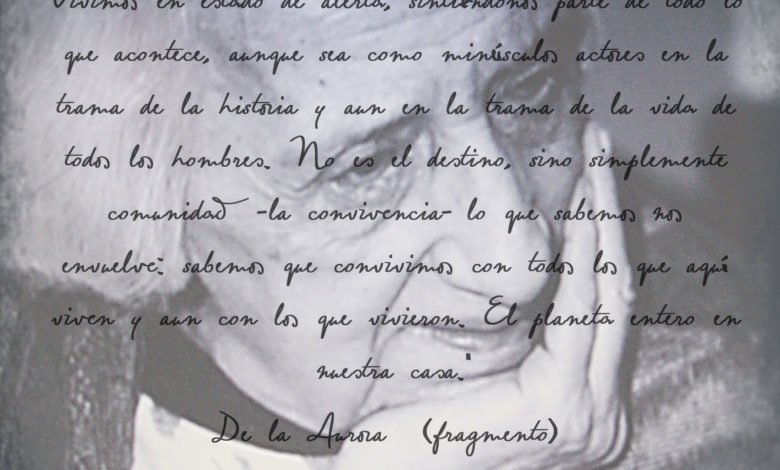 Vivimos en estado de alerta, sintiéndonos parte de todo lo
que acontece, aunque sea como minúsculos actores en la
trama de la historia y aun en la trama de la vida de
todos los hombres. No es el destino, sino simplemente
comunidad -la convivencia- lo que sabemos nos
envuelve: sabemos que convivimos con todos los que aquí
viven y aun con los que vivieron. El planeta entero en
nuestra casa.'
De la Aurora (fragmento)